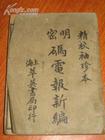 精校袖珍本
明密碼電報新編
上海華英書局印行